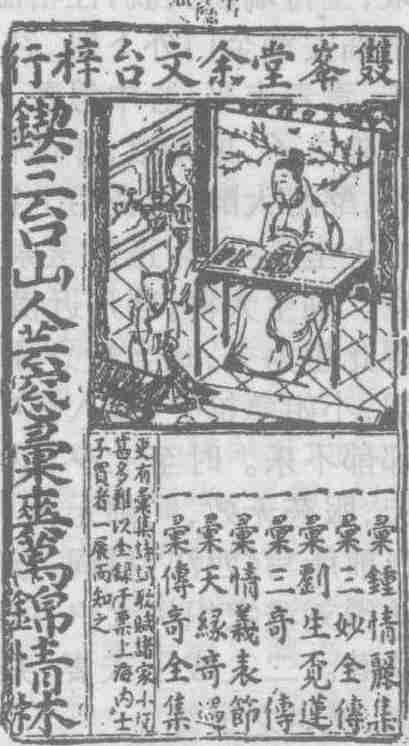 雙峯堂余文台梓行
一彙鍾情麗集
一彙三妙全傳
一彙劉生覓蓮
一彙三奇傳
一彙情義表節
一彙天緣奇遇
一彙傳奇全集
更有彙集詩詞歌賦諸家小說
甚多難以全錄于票上海內士
子買者一展而知之
鍥三台山人芸窓彙爽萬錦情林